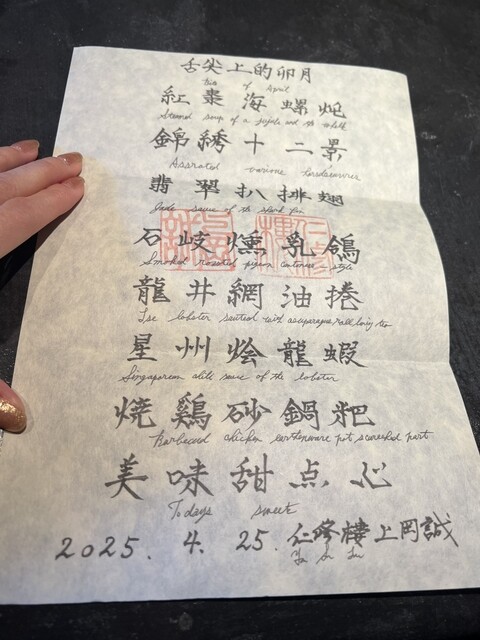 舌尖上的卯月
of April
紅棗海螺炖
Steamed soup of a jujube and
錦綉十二景
Assorted various
翡翠扒排翅
Jade sauce of the shark fin
石岐燻乳鴿
Smoked roasted pigeon Cantonese style
龍井網油捲
lobster sauteed with asparagus roll
星州烩龍蝦
Singaporean sauce of the lobster
焼鶏砂鍋粑
Barbecued chicken earthenware pot scorched part
美味甜点心
Todays sweet
2025. 4. 25. 仁修樓上岡誠